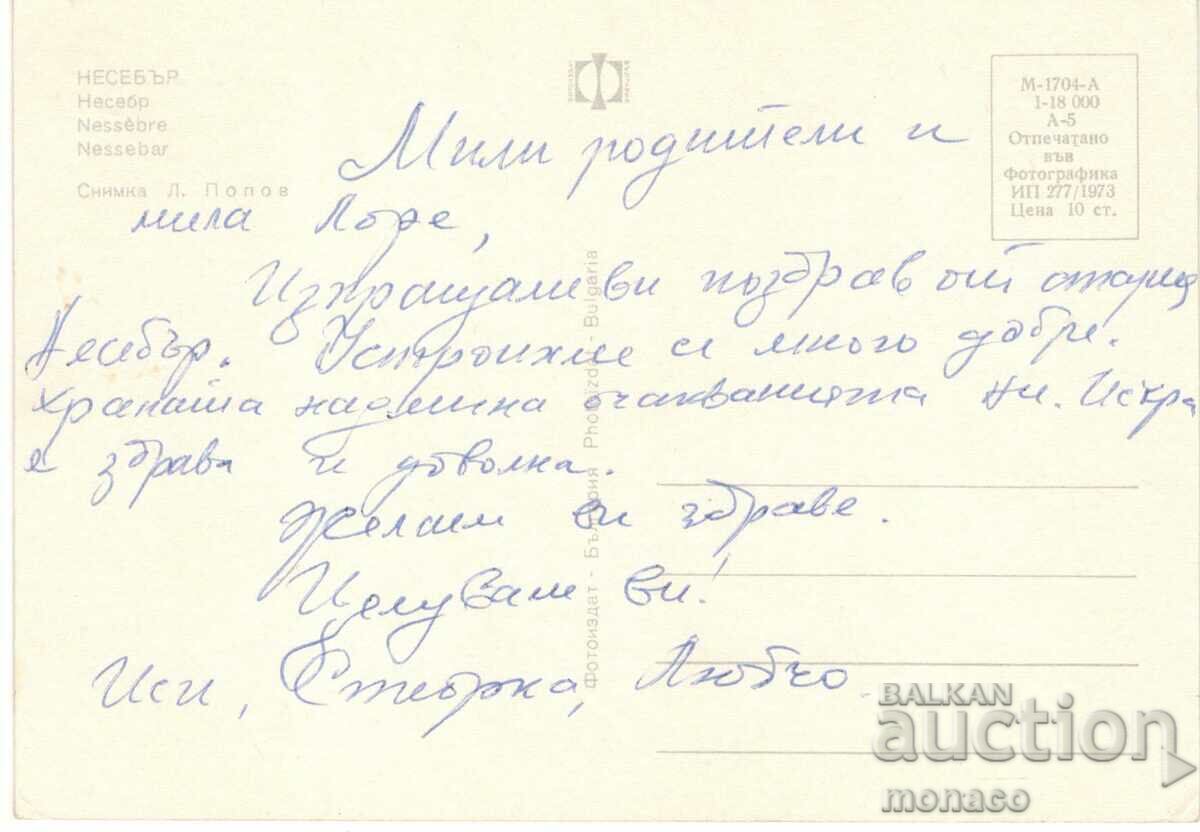 НЕСЕБЪР
Несебр
Nessèbre
Nessebar
Снимка Л. Попов
М-1704-А
1-18 000
А-5
Отпечатано
във
Фотографика
ИП 277/1973
Цена 10 ст.
Мили родители и
мила Лоре,
Изпращаме ви поздрав от стария
Несебър. Устроихме се много добре.
Храната надмина очакванията ни. Искра
е здрава и доволна.
Желаем ви здраве.
Целувам ви!
Иси, Любчо
Фотоиздат - България Photoizdat - Bulgaria
BALKAN
auction
monaco